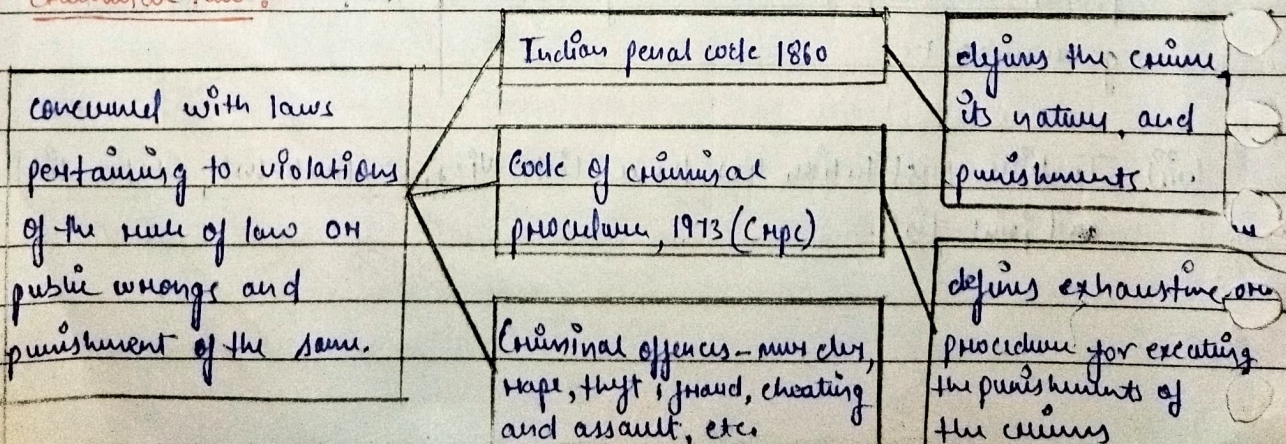 Criminal law:
concerned with laws
pertaining to violations
of the rule of law or
public wrongs and
punishment of the same.
Indian penal code 1860
Code of criminal
procedure, 1973 (Crpc)
Criminal offences - murder,
rape, theft, fraud, cheating
and assault, etc.
defines the crime,
its nature, and
punishments.
defines exhaustive
procedure for excuting
the punishments of
the crimes